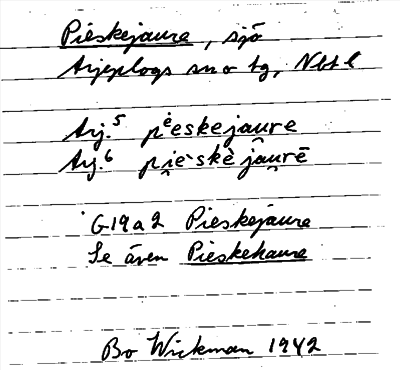 Pieskejaure, sjö
Arjeplogs sn o tg, Nbtl
Arj.⁵ pėeskejau̯re
Arj.⁶ pi̯èskè jau̯rē
G19a2 Pieskejaure
Se även Pieskehaure
Bo Wickman 1942